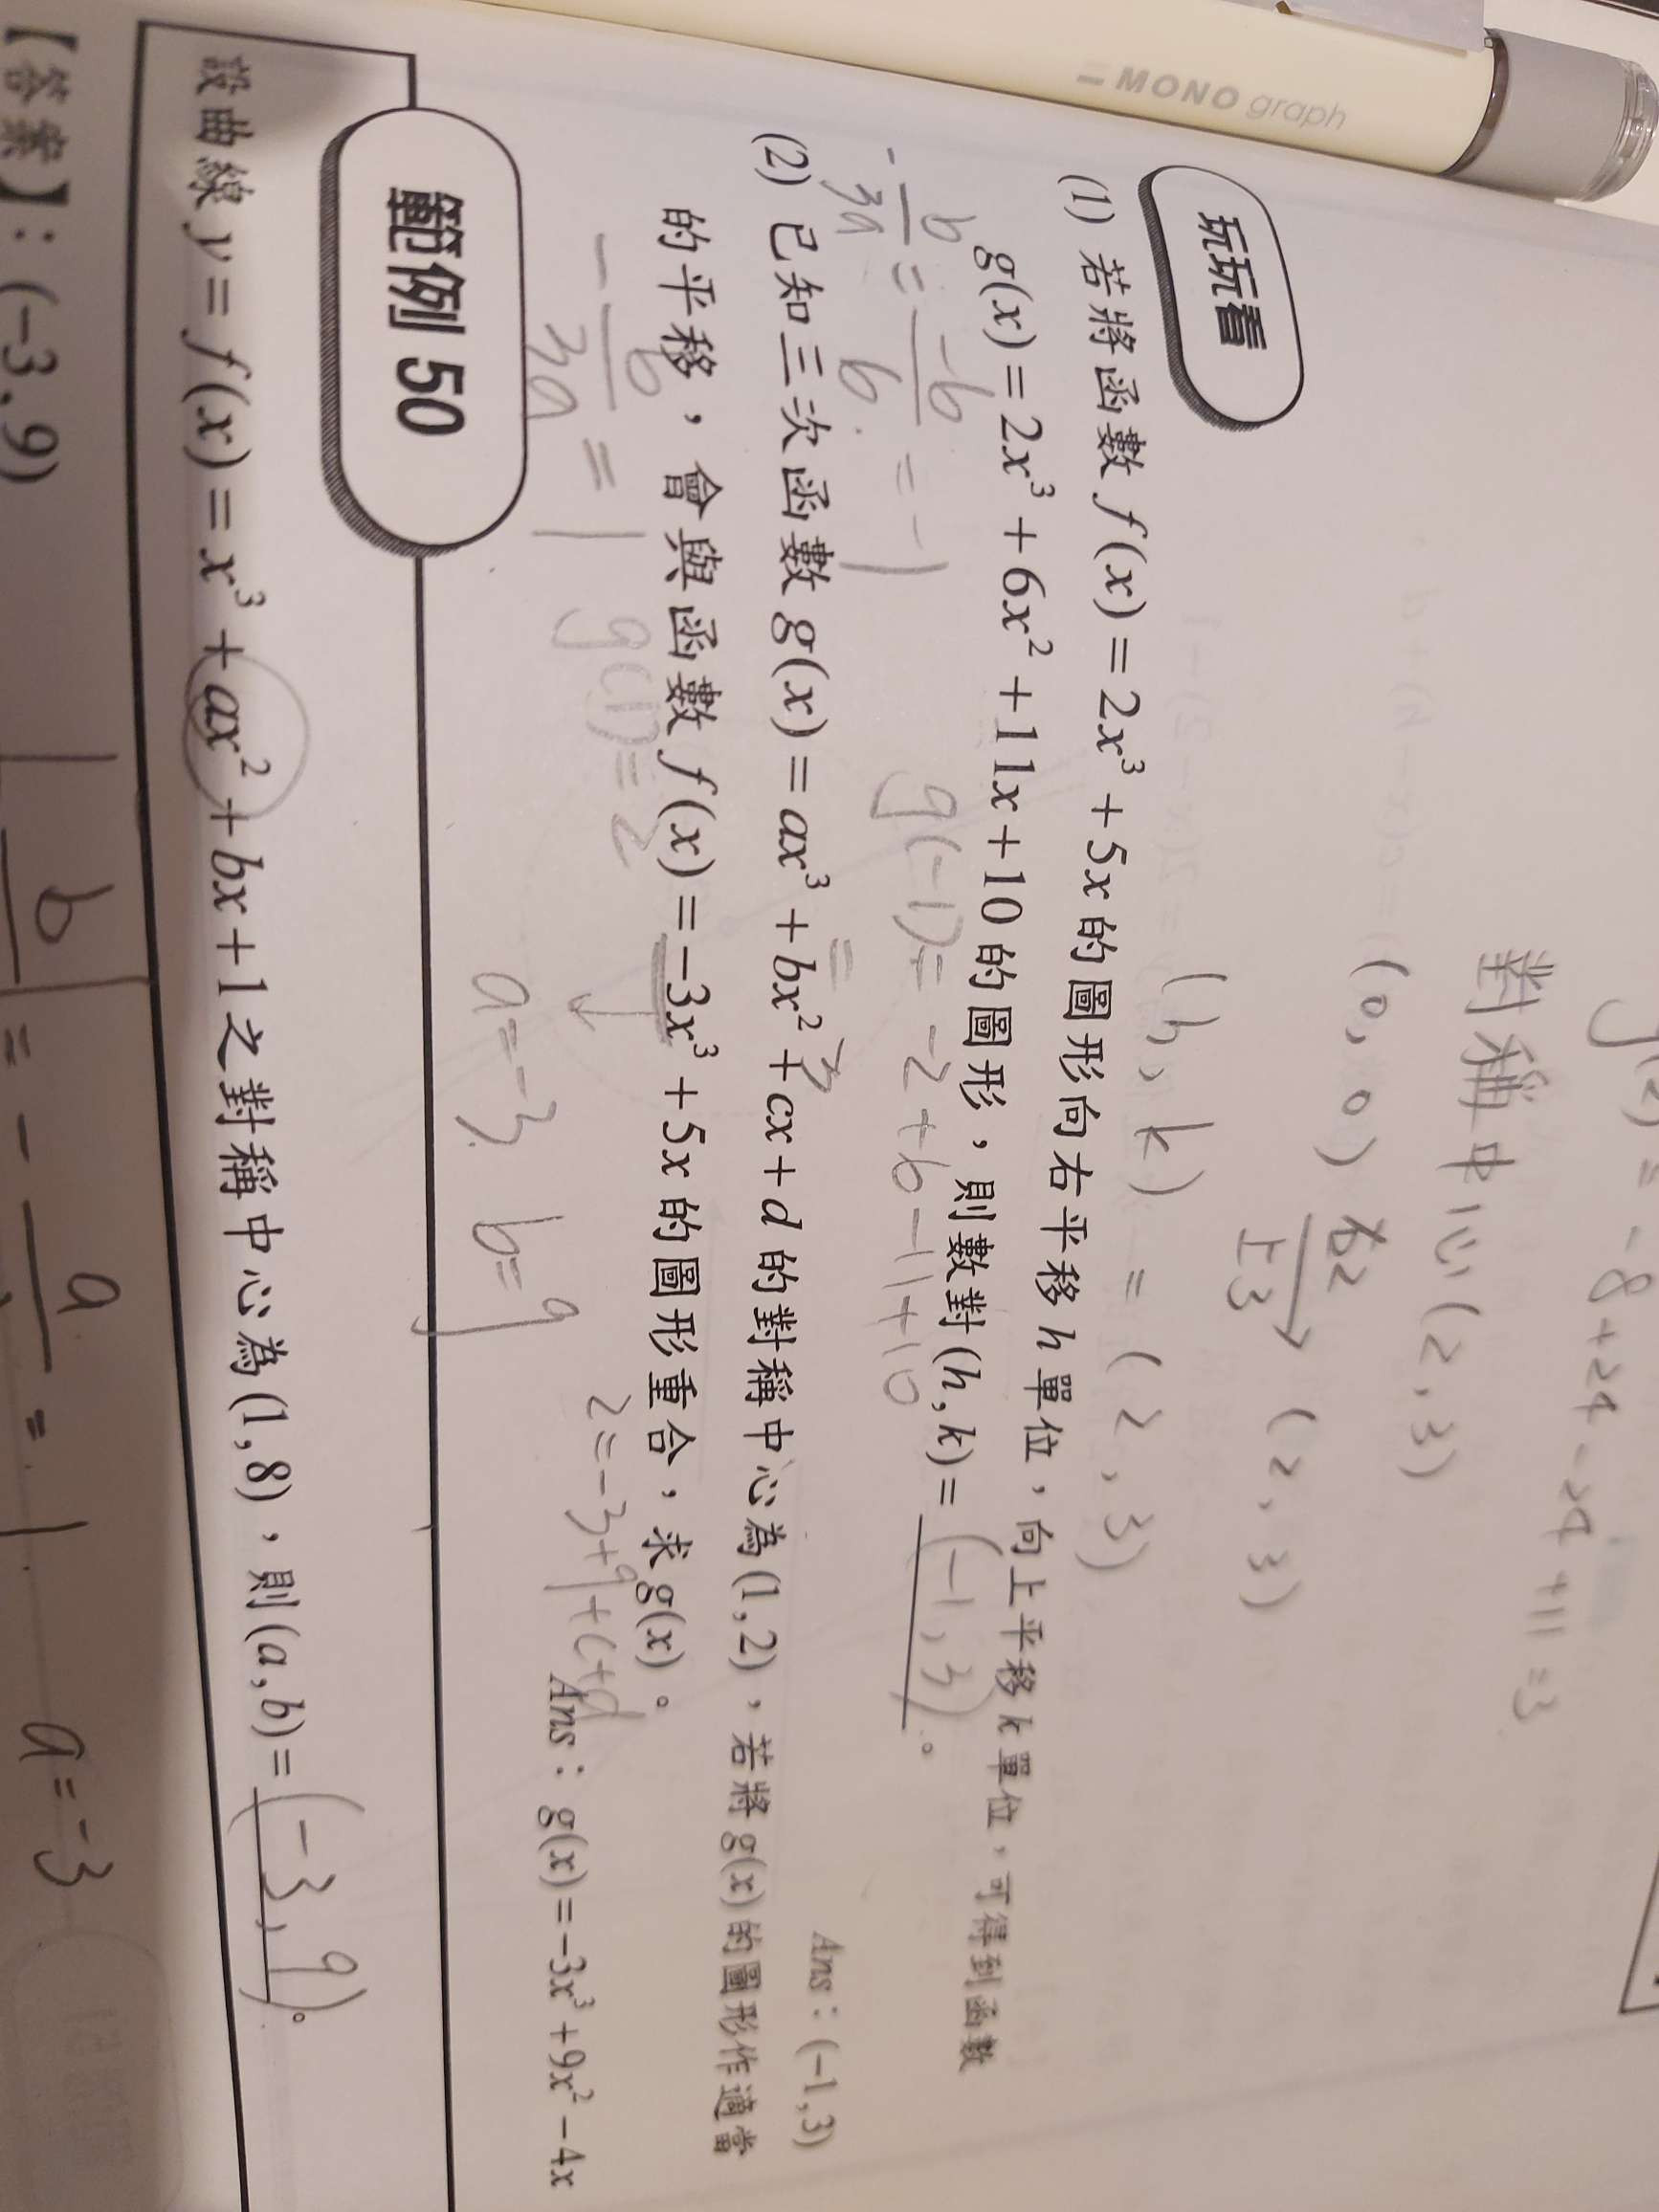 MONO graph
對稱中心(2,3)
(0,0) 右2 上3 → (2,3)
玩玩看
(h,k) = (2,3)
(1) 若將函數 f(x)=2x³+5x 的圖形向右平移 h 單位，向上平移 k 單位，可得到函數
g(x)=2x³+6x²+11x+10 的圖形，則數對(h,k)=(-1,3)。
-b/3a = -b/6 = -1 g(-1)=-2+6-11+10
Ans：(-1,3)
(2) 已知三次函數 g(x)=ax³+bx²+cx+d 的對稱中心為(1,2)，若將 g(x)的圖形作適當
的平移，會與函數 f(x)=-3x³+5x 的圖形重合，求 g(x)。
-b/3a = 1 g(1)=2 2=-3+9+c+d
Ans：g(x)=-3x³+9x²-4x
a=-3 b=9
範例 50
設曲線 y=f(x)=x³+ax²+bx+1之對稱中心為(1,8)，則(a,b)=(-3,9)。
【答案】：(-3,9)
a=-3